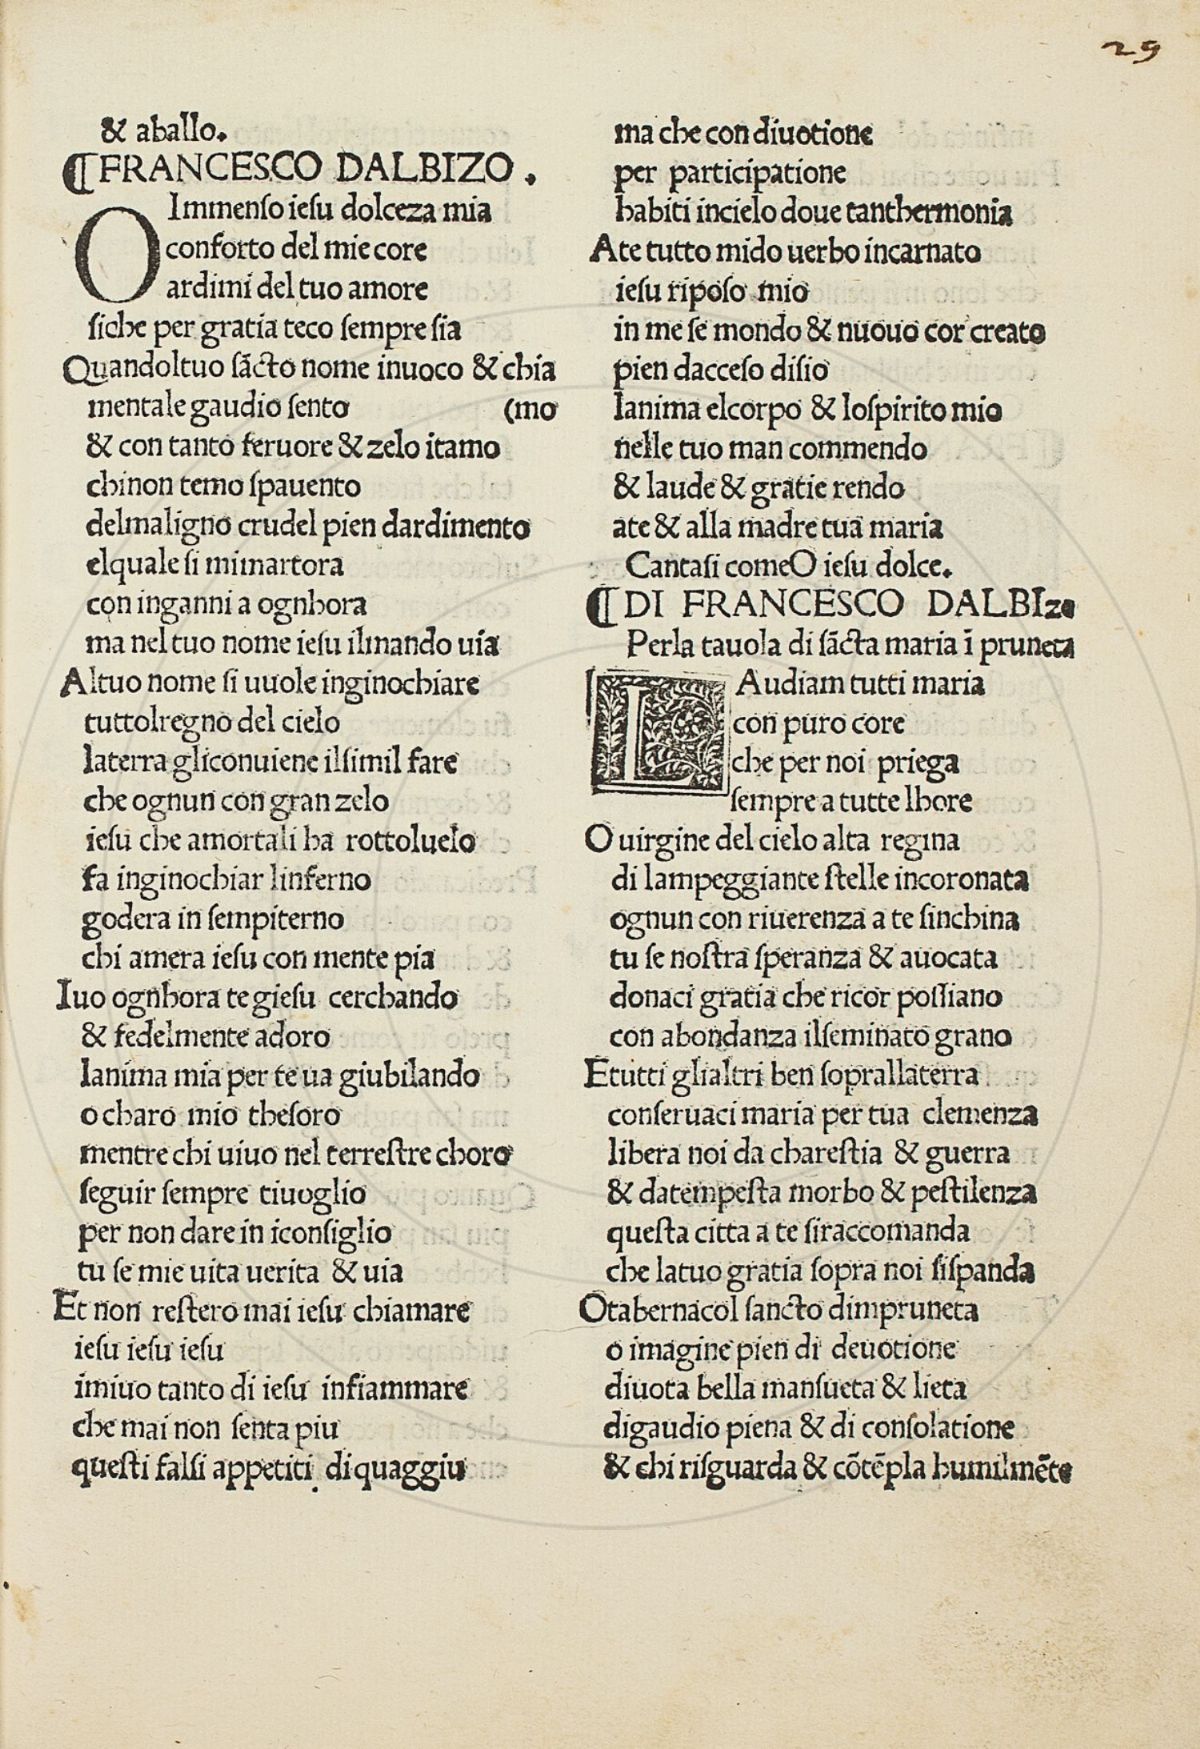 29
& aballo.
¶FRANCESCO DALBIZO.
OImmenso iesu dolceza mia
conforto del mie core
ardimi del tuo amore
siche per gratia teco sempre sia
Quandoltuo sācto nome inuoco & chia
mentale gaudio sento (mo
& con tanto feruore & zelo itamo
chinon temo spauento
delmaligno crudel pien dardimento
elquale si mimartora
con inganni a ognhora
ma nel tuo nome iesu ilmando uia
Altuo nome si uuole inginochiare
tuttolregno del cielo
laterra gliconuiene ilsimil fare
che ognun con gran zelo
iesu che amortali ha rottoluelo
fa inginochiar linferno
godera in sempiterno
chi amera iesu con mente pia
Iuo ognhora te giesu cerchando
& fedelmente adoro
lanima mia per te ua giubilando
o charo mio thesoro
mentre chi uiuo nel terrestre choro
seguir sempre tiuoglio
per non dare in iconsiglio
tu se mie uita uerita & uia
Et non restero mai iesu chiamare
iesu iesu iesu
imiuo tanto di iesu infiammare
che mai non senta piu
questi falsi appetiti di quaggiu
ma che con diuotione
per participatione
habiti incielo doue tanthermonia
Ate tutto mido uerbo incarnato
iesu riposo mio
in me se mondo & nuouo cor creato
pien dacceso disio
lanima elcorpo & lospirito mio
nelle tuo man commendo
& laude & gratie rendo
ate & alla madre tua maria
Cantasi comeO iesu dolce.
¶DI FRANCESCO DALBIzo
Perla tauola di sācta maria ī pruneta
LAudiam tutti maria
con puro core
che per noi priega
sempre a tutte lhore
O uirgine del cielo alta regina
di lampeggiante stelle incoronata
ognun con riuerenza a te sinchina
tu se nostra speranza & auocata
donaci gratia che ricor possiano
con abondanza ilseminato grano
Etutti glialtri ben soprallaterra
conseruaci maria per tua clemenza
libera noi da charestia & guerra
& datempesta morbo & pestilenza
questa citta a te siraccomanda
che latuo gratia sopra noi sispanda
Otabernacol sancto dimpruneta
o imagine pien di deuotione
diuota bella mansueta & lieta
digaudio piena & di consolatione
& chi risguarda & cōtēpla humilmēte